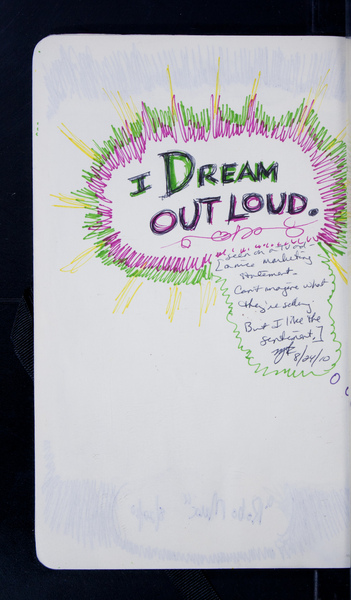 I DREAM
OUT LOUD.
seen on a
[a nice marketing
statement.
Can't imagine what
they're selling.
But I like the
sentiment.]
8/24/10